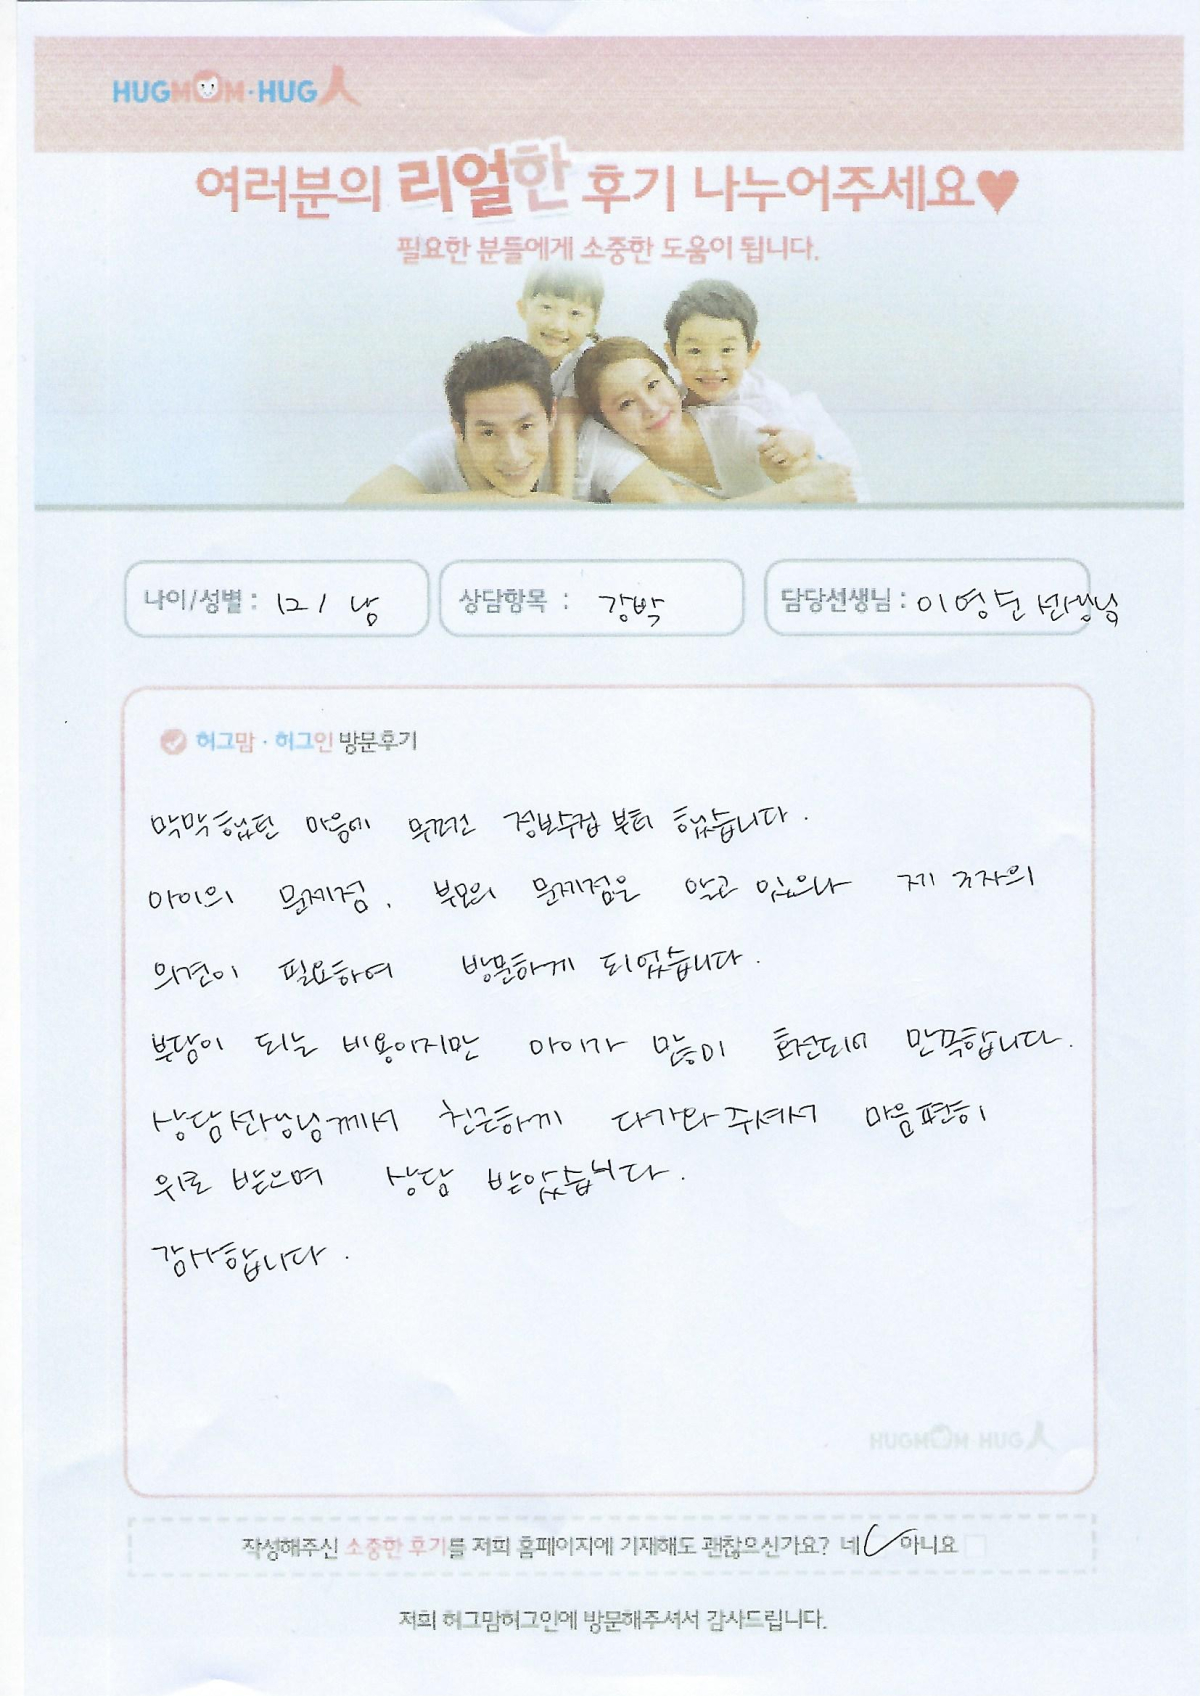 HUGMOM·HUG人
여러분의 리얼한 후기 나누어주세요♥
필요한 분들에게 소중한 도움이 됩니다.
나이/성별 : 12 / 남
상담항목 : 강박
담당선생님 : 이영순 선생님
허그맘·허그인 방문후기
막막했던 마음에 무꺼건 정보수집 부터 했습니다.
아이의 문제점, 부모의 문제점은 알고 있으나 제 3자의
의견이 필요하여 방문하게 되었습니다.
부담이 되는 비용이지만 아이가 많이 호전되어 만족합니다.
상담선생님께서 친근하게 다가와 주셔서 마음편히
위로 받으며 상담 받았습니다.
감사합니다.
HUGMOM HUG人
작성해주신 소중한 후기를 저희 홈페이지에 기재해도 괜찮으신가요? 네 아니요
저희 허그맘허그인에 방문해주셔서 감사드립니다.